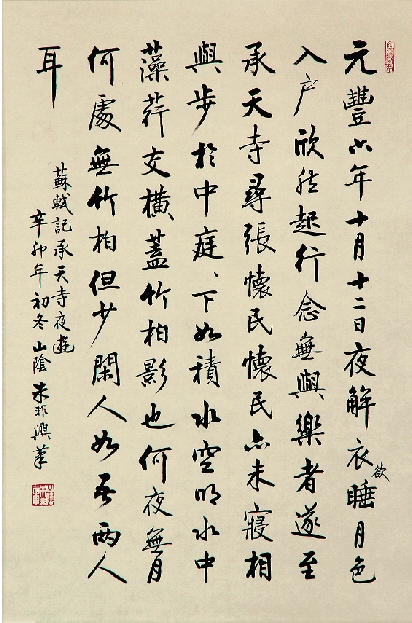 元豐六年十月十二日夜解衣欲睡月色
入户欣然起行念無與樂者遂至
承天寺尋張懷民懷民亦未寢相
與步於中庭、下如積水空明水中
藻荇交横蓋竹柏影也何夜無月
何處無竹柏但少閑人如吾兩人
耳
蘇軾記承天寺夜遊
辛卯年初冬山陰朱